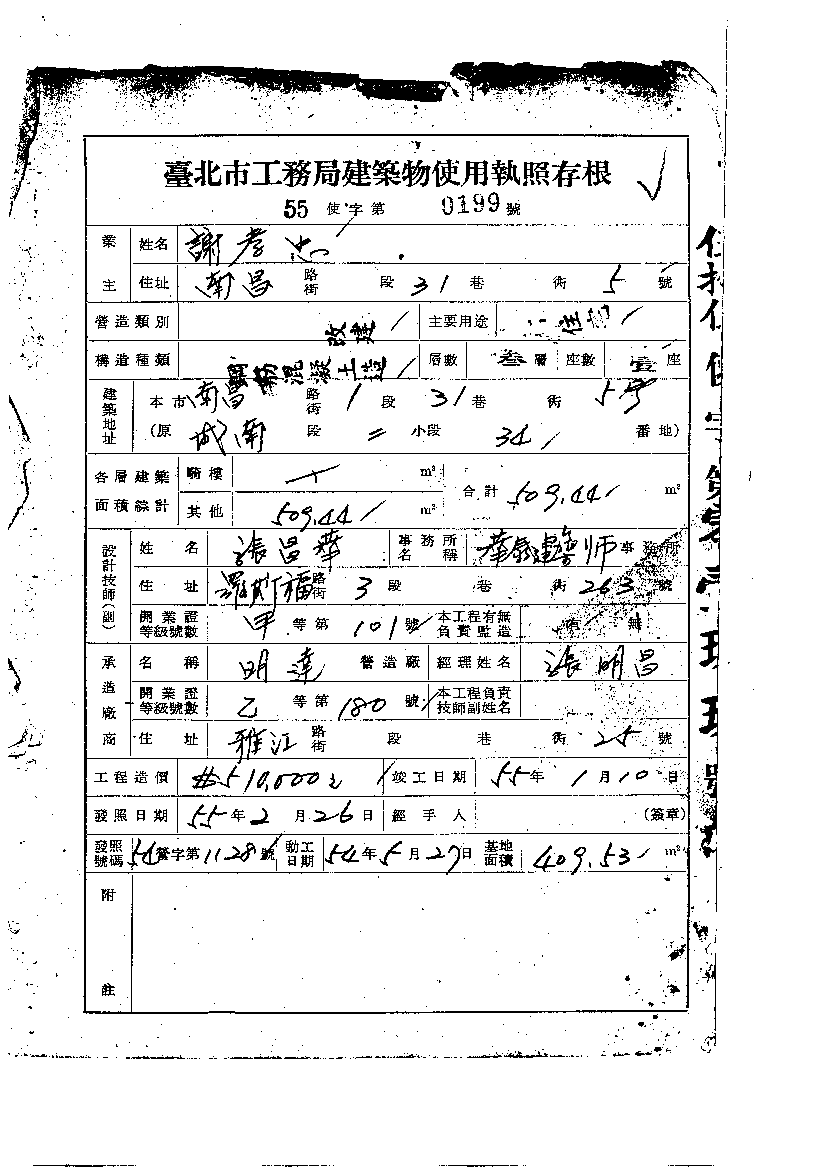 臺北市工務局建築物使用執照存根
55 使字第 0199 號
業主 姓名 謝孝忠
住址 南昌 路街 段 31 巷 衖 5 號
營造類別 改建 主要用途 住宅
構造種類 鋼筋混凝土造 層數 叁層 座數 壹座
建築地址 本市 南昌 路街 1 段 31 巷 衖 5號
(原 城南 段 二 小段 34 番地)
各層建築面積綜計 騎樓 m² 合計 509.44 m²
其他 509.44 m²
設計技師(副) 姓名 張昌華 事務所名稱 建築師事務所
住址 羅斯福 路街 3 段 巷 衖 263 號
開業證等級號數 甲 等第 101 號 本工程有無負責監造 有 無
承造廠商 名稱 明達 營造廠 經理姓名 張明昌
開業證等級號數 乙 等第 180 號 本工程負責技師副姓名
住址 雅江 路街 段 巷 衖 25 號
工程造價 $510,000元 竣工日期 55年 1月10日
發照日期 55年2月26日 經手人 (簽章)
發照號碼 54營字第1128號 動工日期 54年5月27日 基地面積 409.53 m²
附註